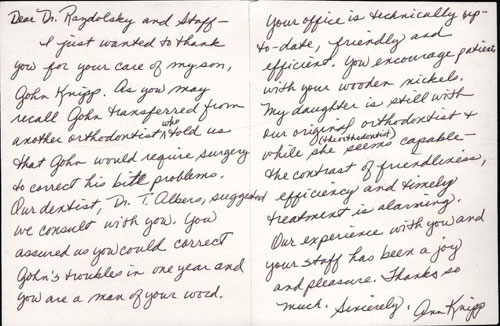 Dear Dr. Razdolsky and Staff—
I just wanted to thank
you for your care of my son,
John Knipp. As you may
recall John transferred from
another orthodontist who told us
that John would require surgery
to correct his bite problems.
Our dentist, Dr. T. Albers, suggested
we consult with you. You
assured us you could correct
John's troubles in one year and
you are a man of your word.
Your office is technically up-
to-date, friendly and
efficient. You encourage patients
with your wooden nickels.
My daughter is still with
our original orthodontist &
while she (the orthodontist) seems capable—
the contrast of friendliness,
efficiency and timely
treatment is alarming.
Our experience with you and
your staff has been a joy
and pleasure. Thanks so
much. Sincerely, Ann Knipp